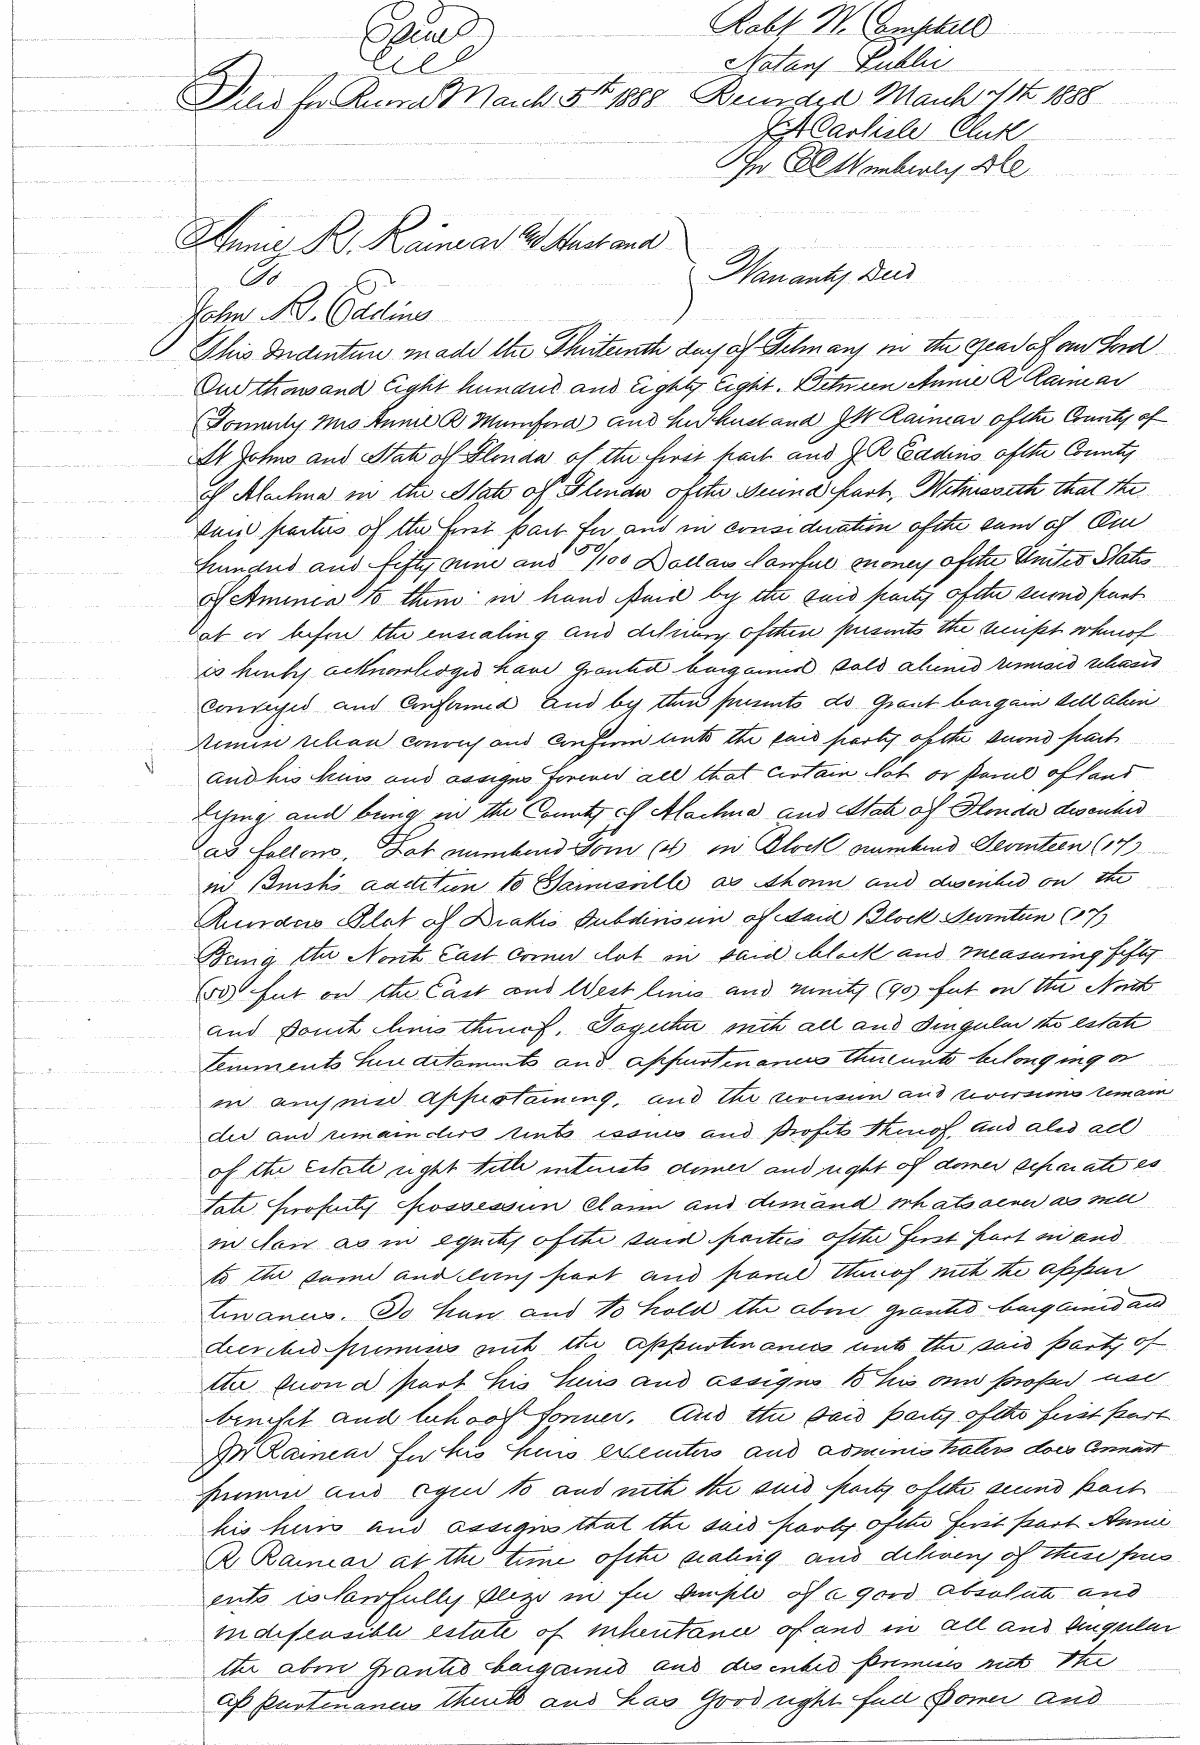 Robt W. Campbell
Seal
Notary Public
Filed for Record March 5th 1888 Recorded March 7th 1888
J A Carlisle Clerk
Per Wimberley DC
Annie R. Rainear & Husband
To
Warranty Deed
John R. Eddins
This Indenture made the Thirteenth day of February in the year of our Lord
One thousand Eight hundred and Eighty Eight. Between Annie R Rainear
(Formerly Mrs Annie R Mumford) and her husband J W Rainear of the County of
St Johns and State of Florida of the first part and J R Eddins of the County
of Alachua in the State of Florida of the second part, Witnesseth that the
said parties of the first part for and in consideration of the sum of One
hundred and fifty nine and 50/100 Dollars lawful money of the United States
of America to them in hand paid by the said party of the second part
at or before the ensealing and delivery of these presents the receipt whereof
is hereby acknowledged have granted bargained sold aliened remised released
conveyed and confirmed and by these presents do grant bargain sell alien
remise release convey and confirm unto the said party of the second part
and his heirs and assigns forever all that certain lot or parcel of land
lying and being in the County of Alachua and State of Florida described
as follows. Lot numbered Four (4) in Block numbered Seventeen (17)
in Brush's addition to Gainesville as shown and described on the
Recorders Plat of Drakes Subdivision of said Block Seventeen (17)
Being the North East corner lot in said block and measuring fifty
(50) feet on the East and West lines and ninety (90) feet on the North
and South lines thereof. Together with all and singular the estate
tenements hereditaments and appurtenances thereunto belonging or
in anywise appertaining, and the reversion and reversions remain
der and remainders rents issues and profits thereof, and also all
of the Estate right title interests dower and right of dower separate es
tate property possession claim and demand whatsoever as well
in law as in equity of the said parties of the first part in and
to the same and every part and parcel thereof with the appur
tenances. To have and to hold the above granted bargained and
described premises with the appurtenances unto the said party of
the second part his heirs and assigns to his own proper use
benefit and behoof forever. And the said party of the first part
J W Rainear for his heirs executors and administrators does covenant
promise and agree to and with the said party of the second part
his heirs and assigns that the said party of the first part Annie
R Rainear at the time of the sealing and delivery of these pres
ents is lawfully seize in fee simple of a good absolute and
indefeasible estate of inheritance of and in all and singular
the above granted bargained and described premises with the
appurtenances thereto and has good right full power and